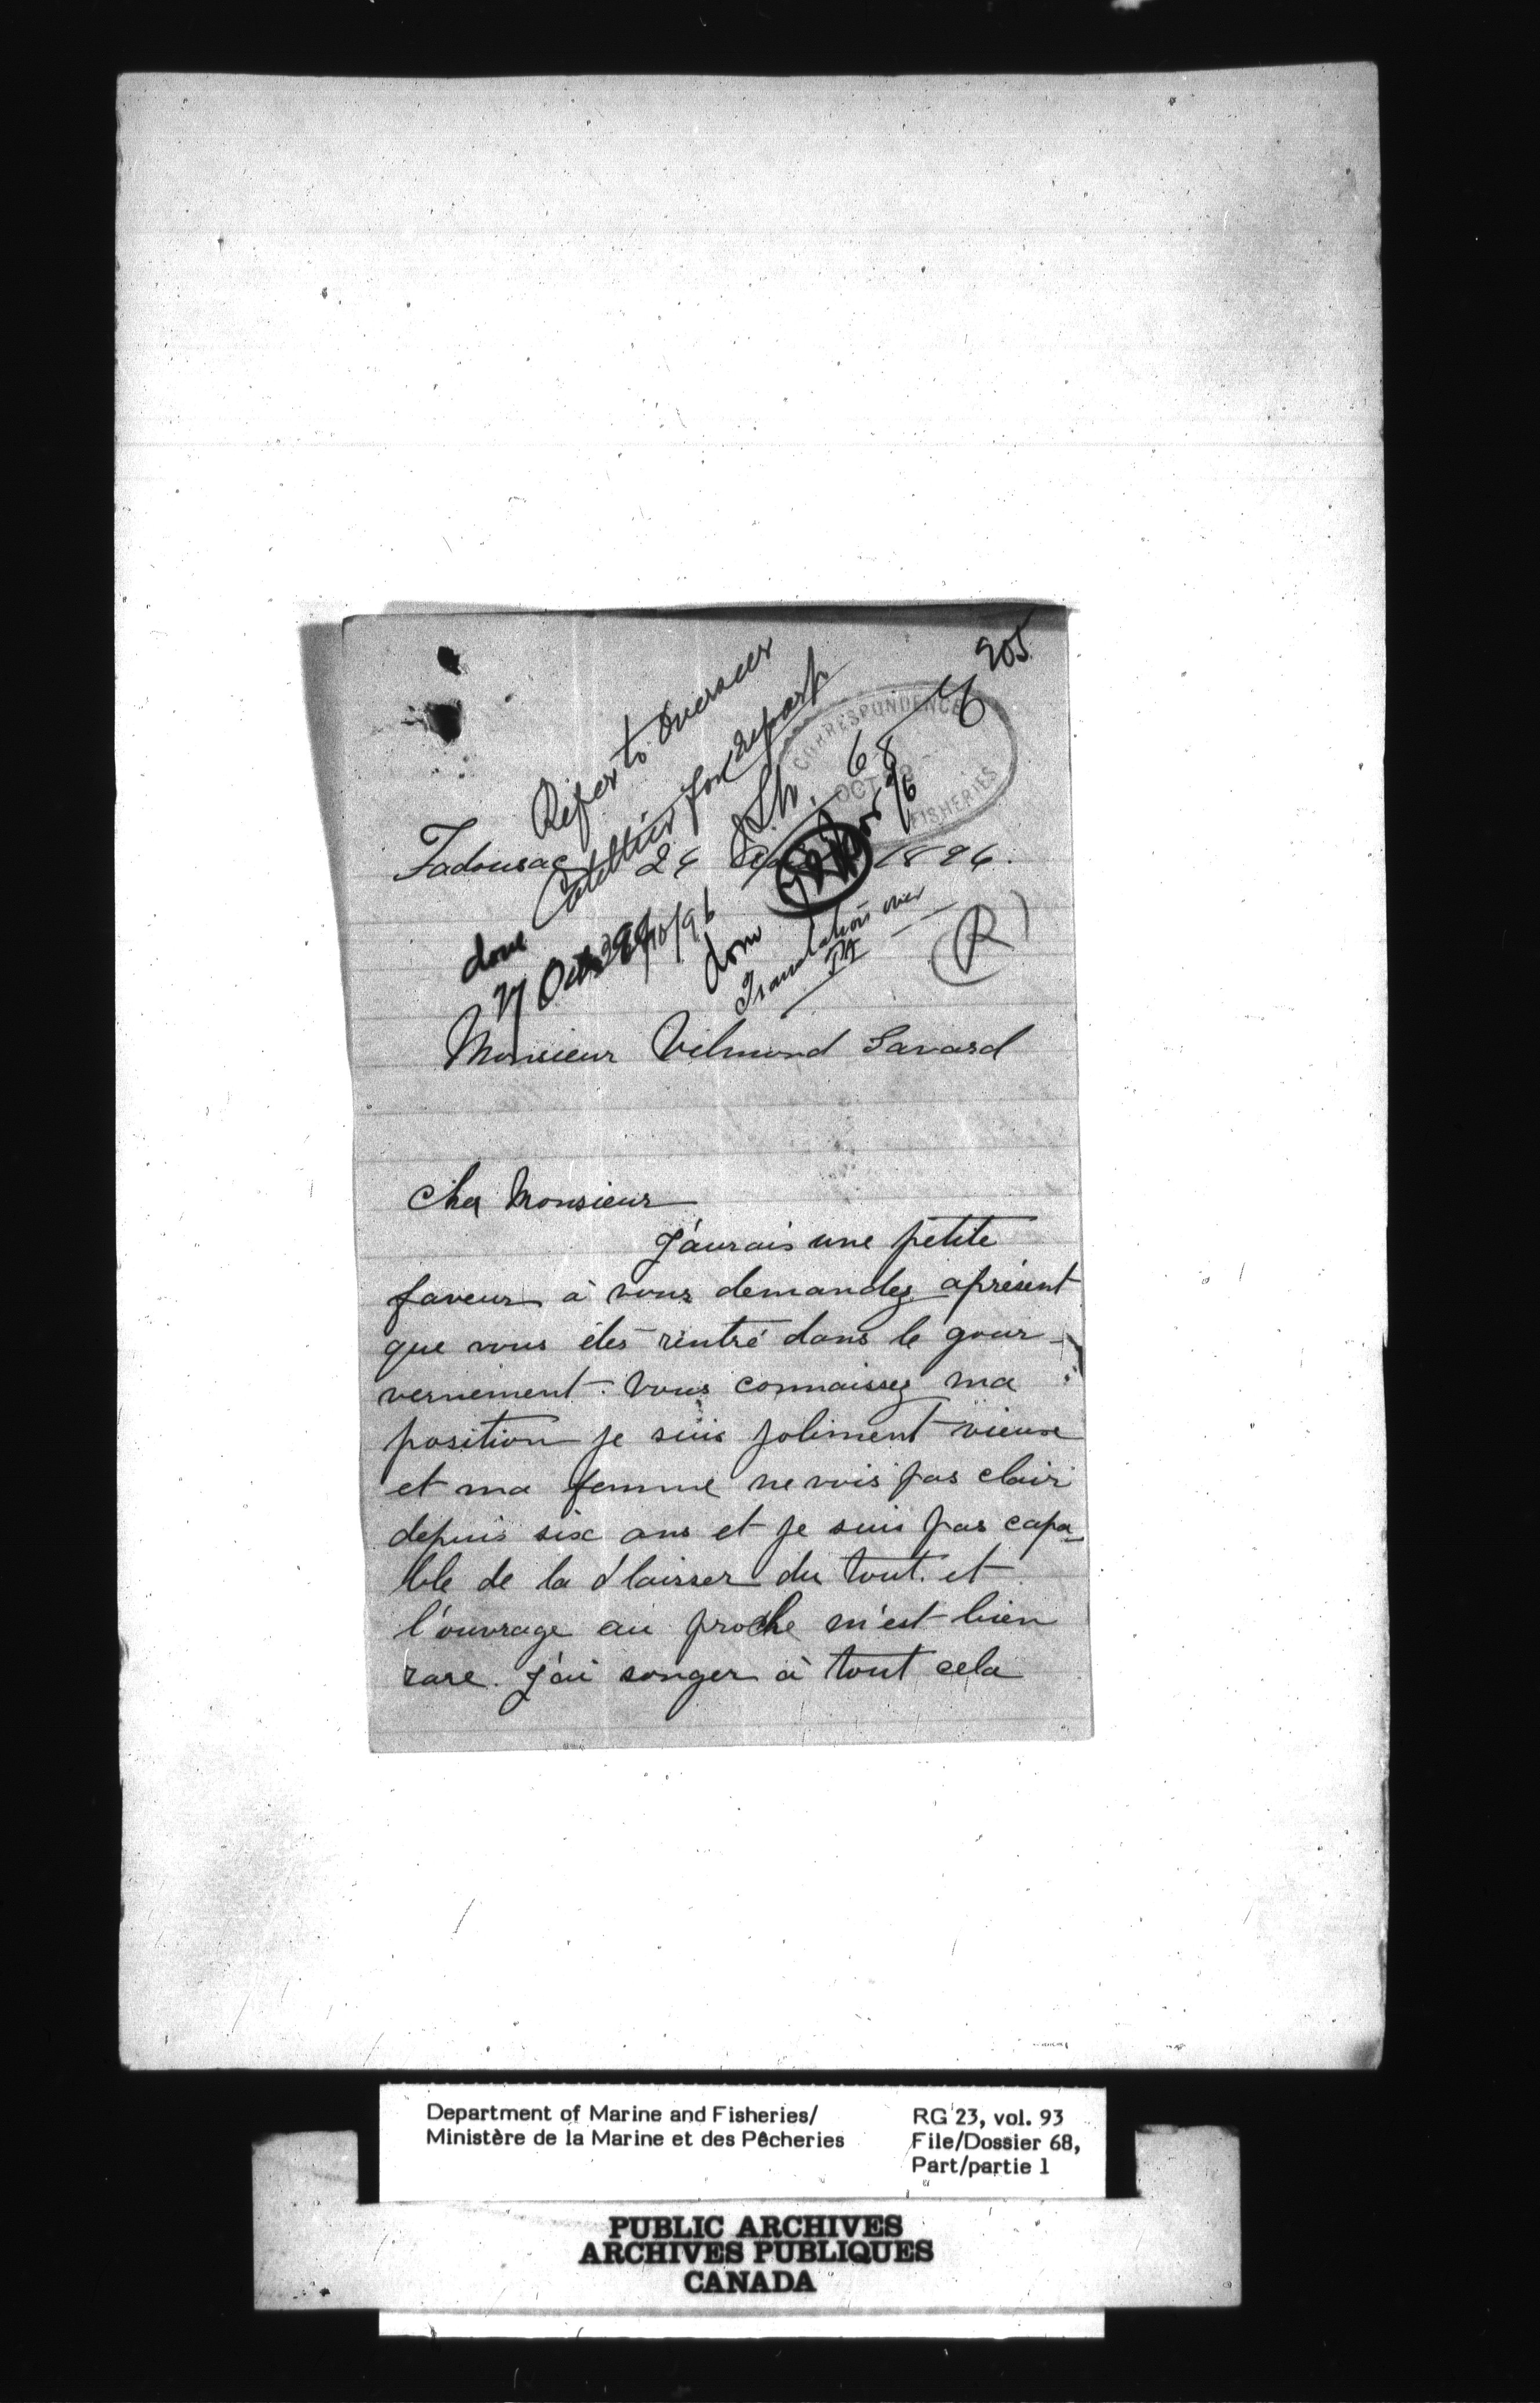 205
Refer to Overseer
for report
CORRESPONDENCE
OCT
FISHERIES
68
Tadousac 24 1896.
done
27 Oct
done
Translation over
(R)
Monsieur Vilmond Savard
Cher Monsieur
J'aurais une petite
faveur à vous demandez apresent
que vous êtes rentré dans le gour-
vernement. Vous connaissez ma
position je suis joliment vieux
et ma femme ne vois pas clair
depuis six ans et je suis pas capa-
ble de la d'laisser du tout. et
l'ouvrage au proche m'est bien
rare. J'ai songer à tout cela
Department of Marine and Fisheries/
Ministère de la Marine et des Pêcheries
RG 23, vol. 93
File/Dossier 68,
Part/partie 1
PUBLIC ARCHIVES
ARCHIVES PUBLIQUES
CANADA